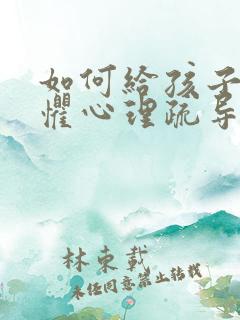 如何给孩子
惧心理疏导
林束载
未经同意禁止转载